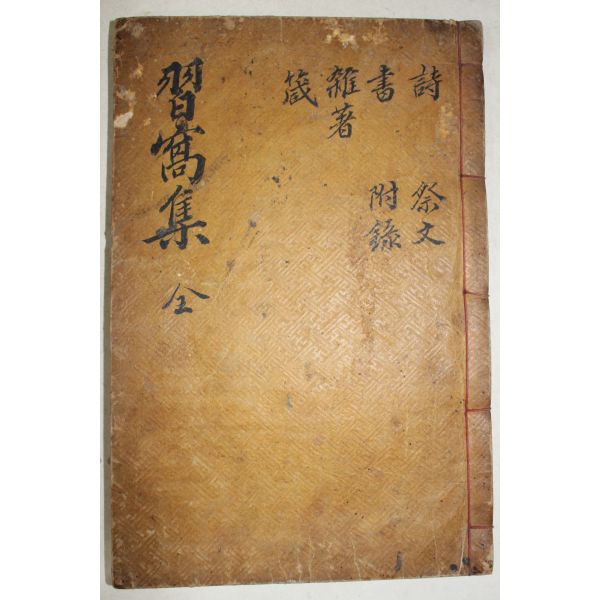 習窩集 全
詩 祭文
書 附錄
雜著
箴